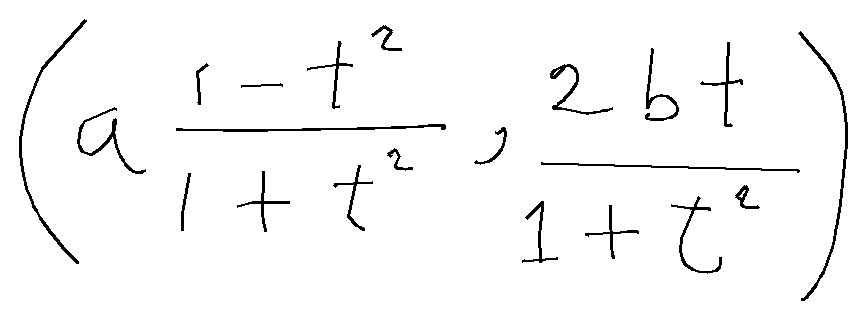 \left( a \frac{1 - t^2}{1 + t^2}, \frac{2bt}{1 + t^2} \right)